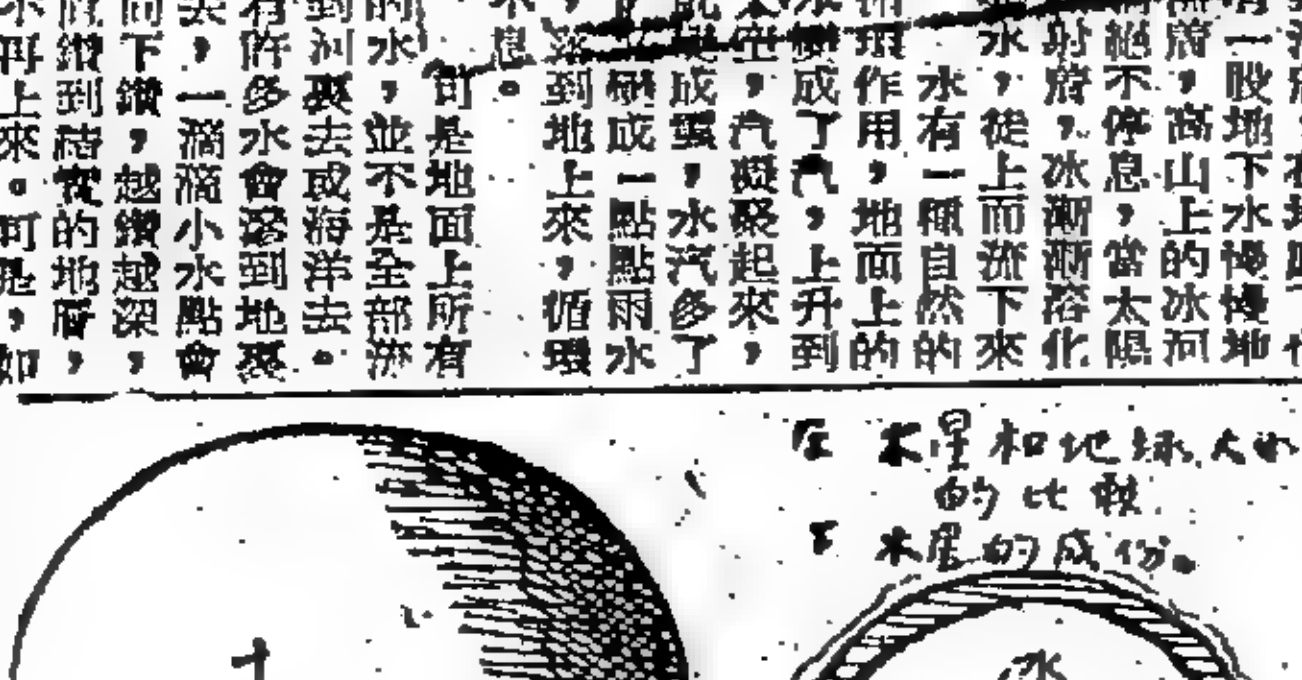 有一股地下水慢慢地
流腐，高山上的冰河
絕不停息，當太陽
射腐，冰漸漸溶化
水，從上而流下來
水有一種自然的
循環作用，地面上的
水變成了汽，上升到
太空，汽凝聚起來，
變成雲，水汽多了
凝成一點點雨水
落到地上來，循環
不息。
可是地面上所有
的水，並不是全部流
到河裏去或海洋去。
有許多水會滲到地裏
去，一滴滴小水點會
向下鑽，越鑽越深，
鑽到結實的地層，
不再上來。可是，如
左 木星和地球大小
的比較
下 木星的成份。
冰